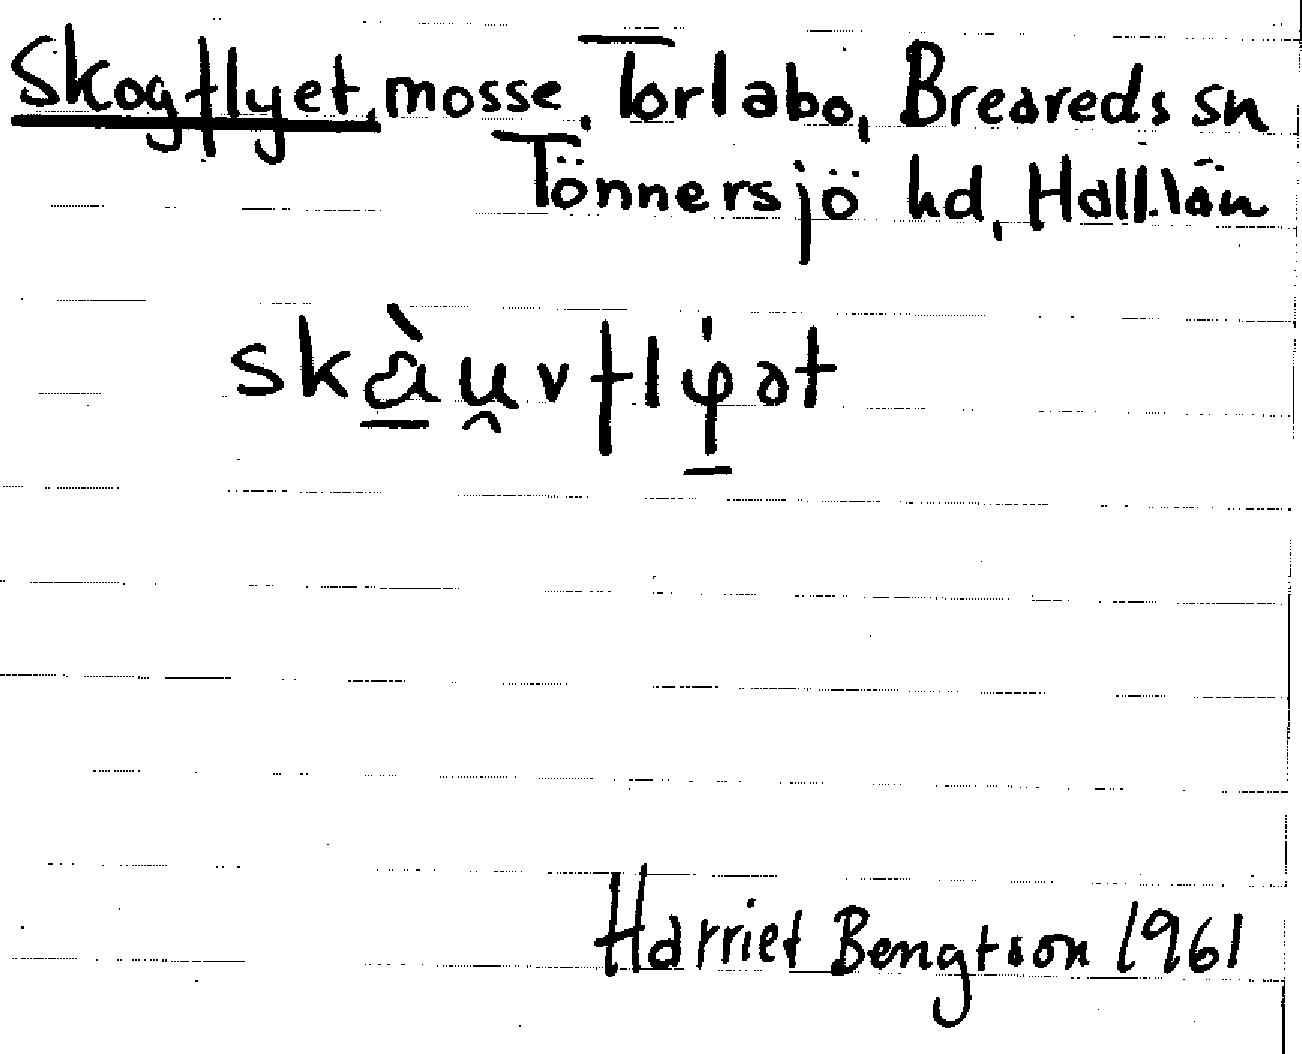 Skogflyet, mosse, Torlabo, Breareds sn
Tönnersjö hd, Hall. län
skàu̯vflıφət
Harriet Bengtson 1961